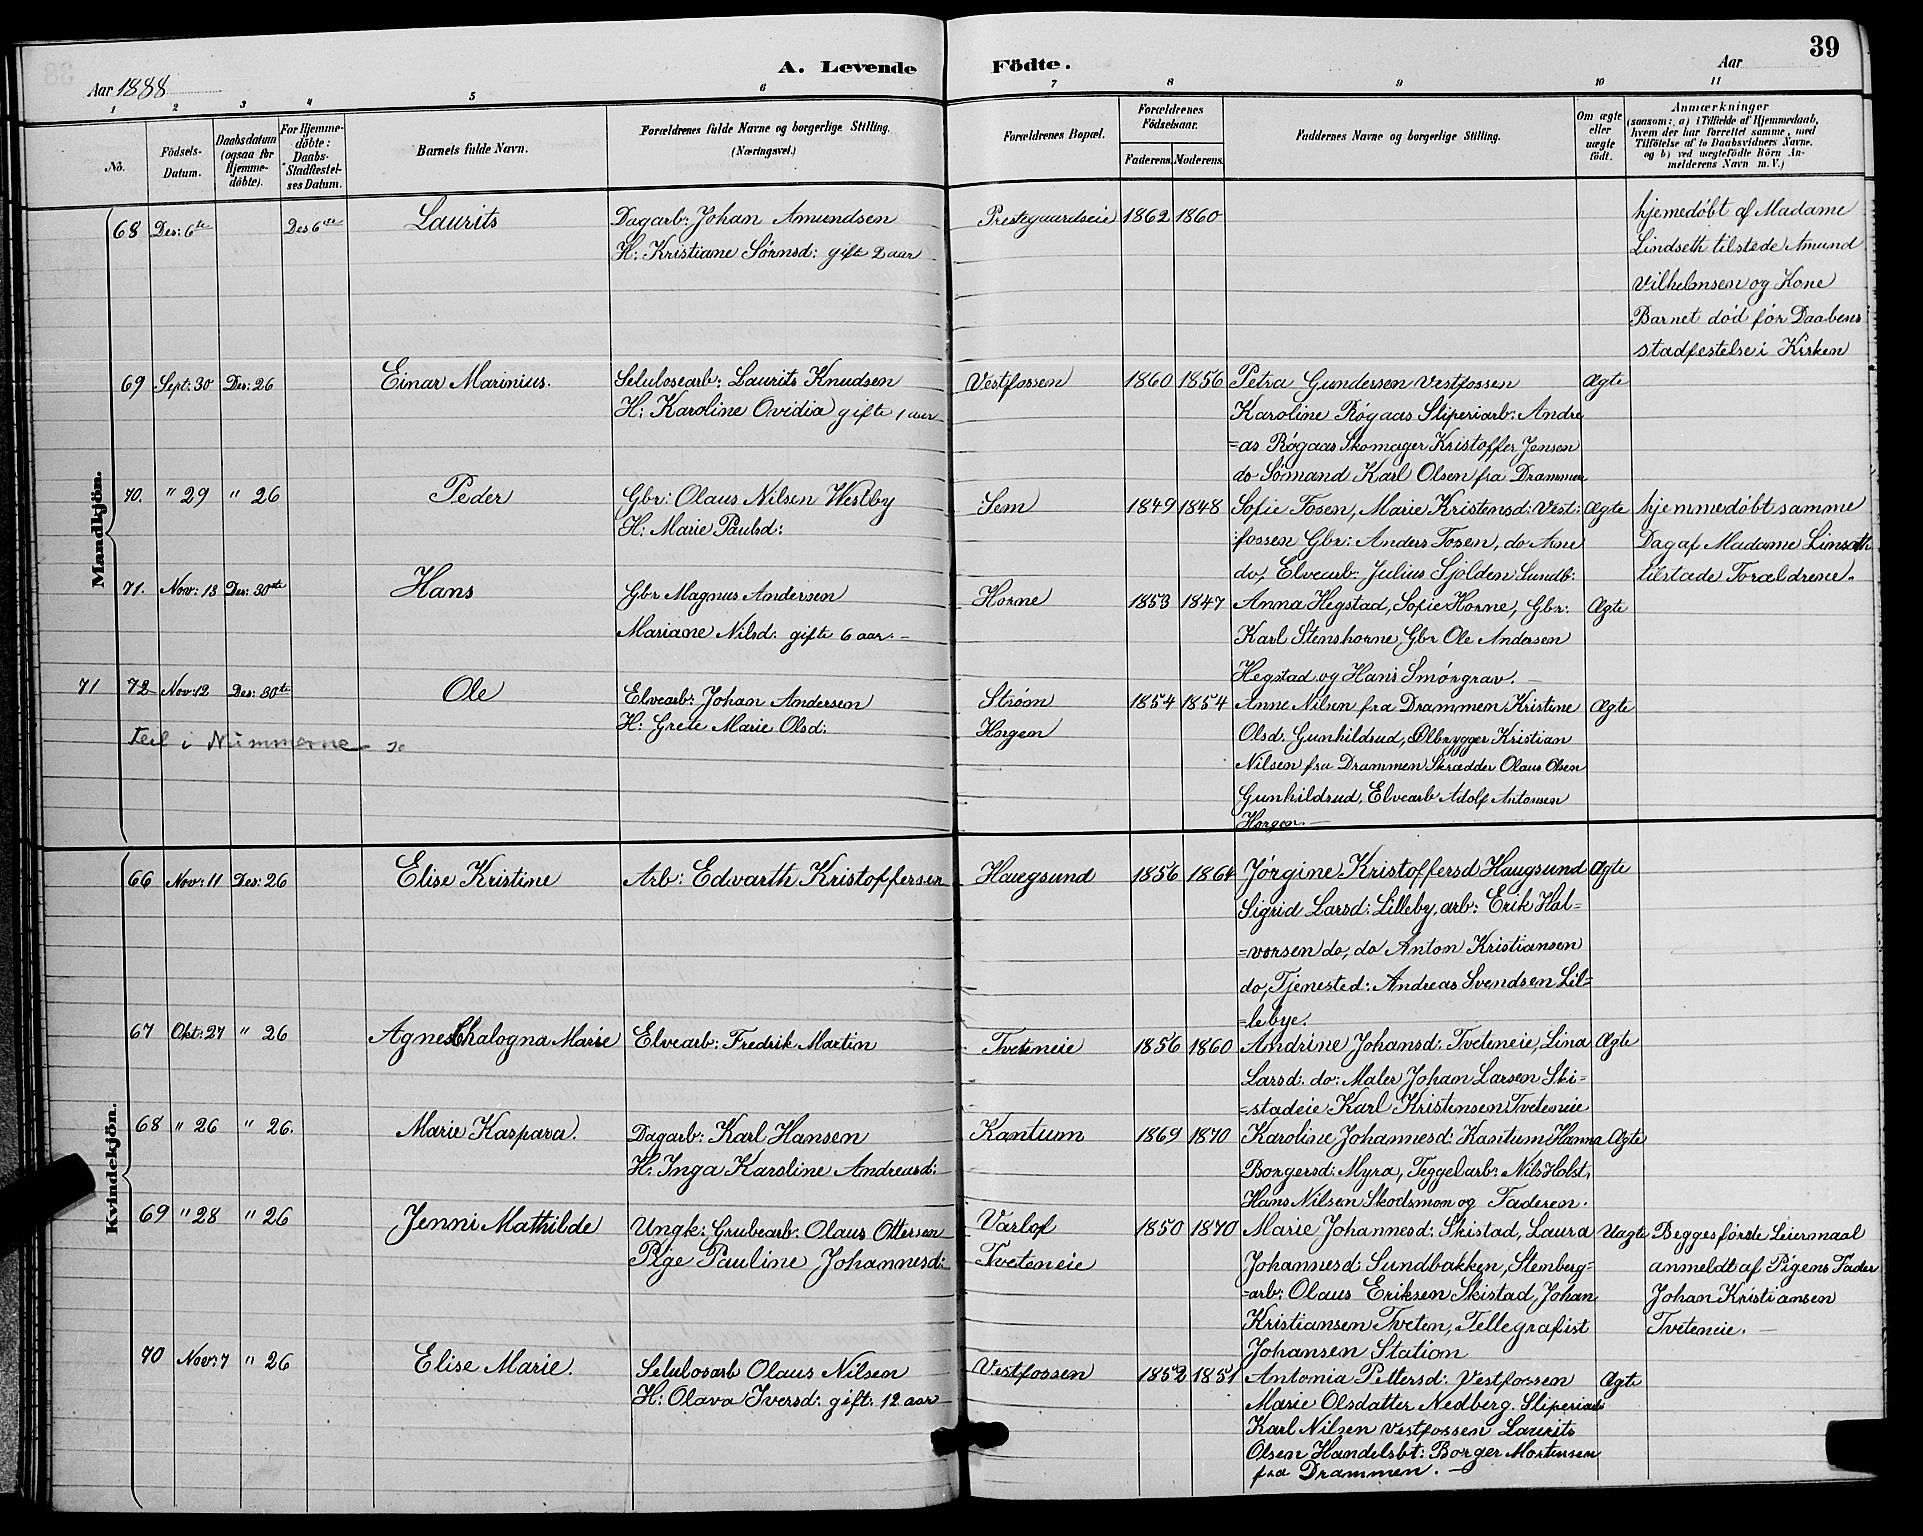 39
A. Levende Födte.
Aar 1888
Aar
1 2 3 4 5 6 7 8 9 10 11
No.
Födsels-Datum.
Daabsdatum (ogsaa for Hjemme-döbte).
For Hjemme-döbte: Daabs-Stadfæstel-ses Datum.
Barnets fulde Navn.
Forældrenes fulde Navne og borgerlige Stilling. (Næringsvei.)
Forældrenes Bopæl.
Forældrenes Födselsaar.
Faderens. Moderens.
Faddernes Navne og borgerlige Stilling.
Om ægte eller uægte födt.
Anmærkninger
(saasom: a) i Tilfælde af Hjemmedaab,
hvem der har forrettet samme, med
Tilföielse af to Daabsvidners Navne.
og b) ved uægtefödte Börn An-
melderens Navn m. V.)
Mandkjön.
68 Des: 6te Des 6te Laurits Dagarb: Johan Amundsen Prestegaardseie 1862 1860 hjemedøbt af Madame
H: Kristiane Sørnsd: gifte 2 aar Lindseth tilstede Amund
Vilhelmsen og Kone
Barnet død før Daabens
stadfestelse i Kirken
69 Sept: 30 Des: 26 Einar Marinius. Selulosearb: Laurits Knudsen Vestfossen 1860 1856 Petra Gundersen Vestfossen Ægte
H: Karoline Ovidia gifte 1 aar Karoline Røgaas Sliperiarb: Andre
=as Røgaas Skomager Kristoffer Jensen
do Sømand Karl Olsen fra Drammen
70. " 29 " 26 Peder Gbr: Olaus Nilsen Westby Sem 1849 1848 Sofie Fosen, Marie Kristensd: Vest: Ægte hjemmedøbt samme
H: Marie Paulsd: fossen Gbr: Anders Fosen, do Arne Dag af Madame Linseth
do, Elvearb: Julius Sjolden Sundb: tilstæde Forældrene.
71. Nov: 13 Des: 30te Hans Gbr Magnus Andersen Horne 1853 1847 Anna Hegstad, Sofie Horne, Gbr: Ægte
Mariane Nilsd: gifte 6 aar. Karl Stenshorne, Gbr Ole Andersen
Hegstad og Hans Smørgrav.
71 72 Nov: 12 Des: 30te Ole Elvearb: Johan Andersen Strøm 1854 1854 Anne Nilsen fra Drammen Kristine Ægte
Feil i Nummerne H: Grete Marie Olsd: Horgen Olsd. Gunhildrud, Ølbrygger Kristian
Nilsen fra Drammen Skrædder Olaus Olsen
Gunhildrud, Elvearb Adolf Antonsen
Horgen.
Kvindekjön.
66 Nov: 11 Des: 26 Elise Kristine Arb: Edvarth Kristoffersen Haugsund 1856 1864 Jørgine Kristoffersd Haugsund Ægte
Sigrid Larsd: Lilleby, arb: Erik Hal=
=vorsen do, do Anton Kristiansen
do, Tjenested: Andreas Svendsen Lil=
=lebye.
67 Okt: 27 " 26 Agnes Chalogna Marie Elvearb: Fredrik Martin Tveteneie 1856 1860 Andrine Johansd: Tveteneie, Lina Ægte
Larsd: do: Maler Johan Larsen Ski=
=stadeie Karl Kristensen Tveteneie
68 " 26 " 26. Marie Kaspara. Dagarb: Karl Hansen Kantum 1869 1870 Karoline Johannesd: Kantum Hanna Ægte
H: Inga Karoline Andreasd: Borgersd: Myra, Teggelarb: Nils Holst,
Hans Nilsen Skodsmon og Faderen.
69 " 28 " 26 Jenni Mathilde Ungk: Grubearb: Olaus Ottersen Varlof 1850 1870 Marie Johannesd: Skistad, Laura Uægte Begges første Leiermaal
Pige Pauline Johannesd: Tveteneie Johannesd: Sundbakken, Stenberg= anmeldt af Pigens Fader
=arb: Olaus Eriksen Skistad, Johan Johan Kristiansen
Kristiansen Tveten, Tellegrafist Tveteneie.
Johansen Station
70 Nov: 7 " 26 Elise Marie. Selulosarb Olaus Nilsen Vestfossen 1852 1851 Antonia Pettersd: Vestfossen Ægte
H: Olava Iversd: gift: 12 aar Marie Olsdatter Nedberg. Sliperiarb
Karl Nilsen Vestfossen Laurits
Olsen Handelsbt: Borger Mortensen
fra Drammen.